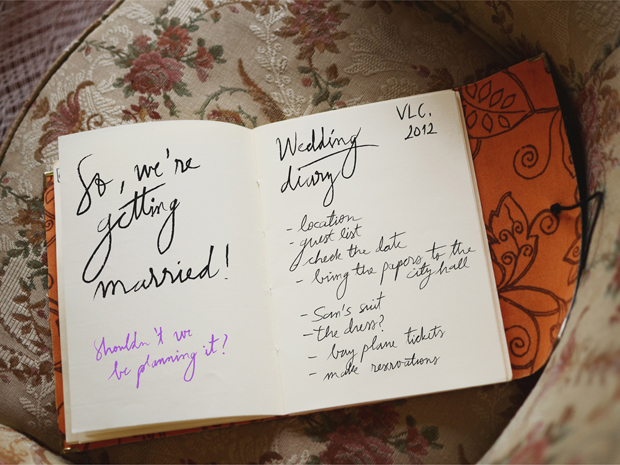 So, we're
getting
married!
Shouldn't we
be planning it?
Wedding
diary
VLC.
2012
- location
- guest list
check the date
- bring the papers to the
city hall
- San's suit
- the dress?
- buy plane tickets
- make reservations